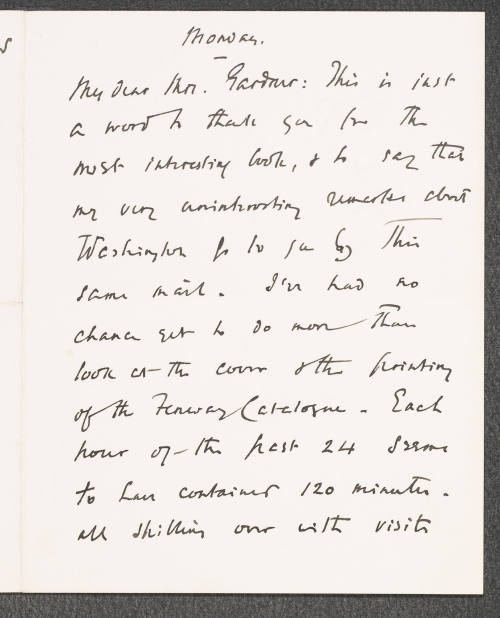 Monday.
My dear Mrs. Gardner: This is just
a word to thank you for the
most interesting book, & to say that
my very uninteresting remarks about
Washington go to you by this
same mail. I've had no
chance yet to do more than
look at the cover & the printing
of the Fenway Catalogue. Each
hour of the past 24 seems
to have contained 120 minutes.
all spilling over with visits